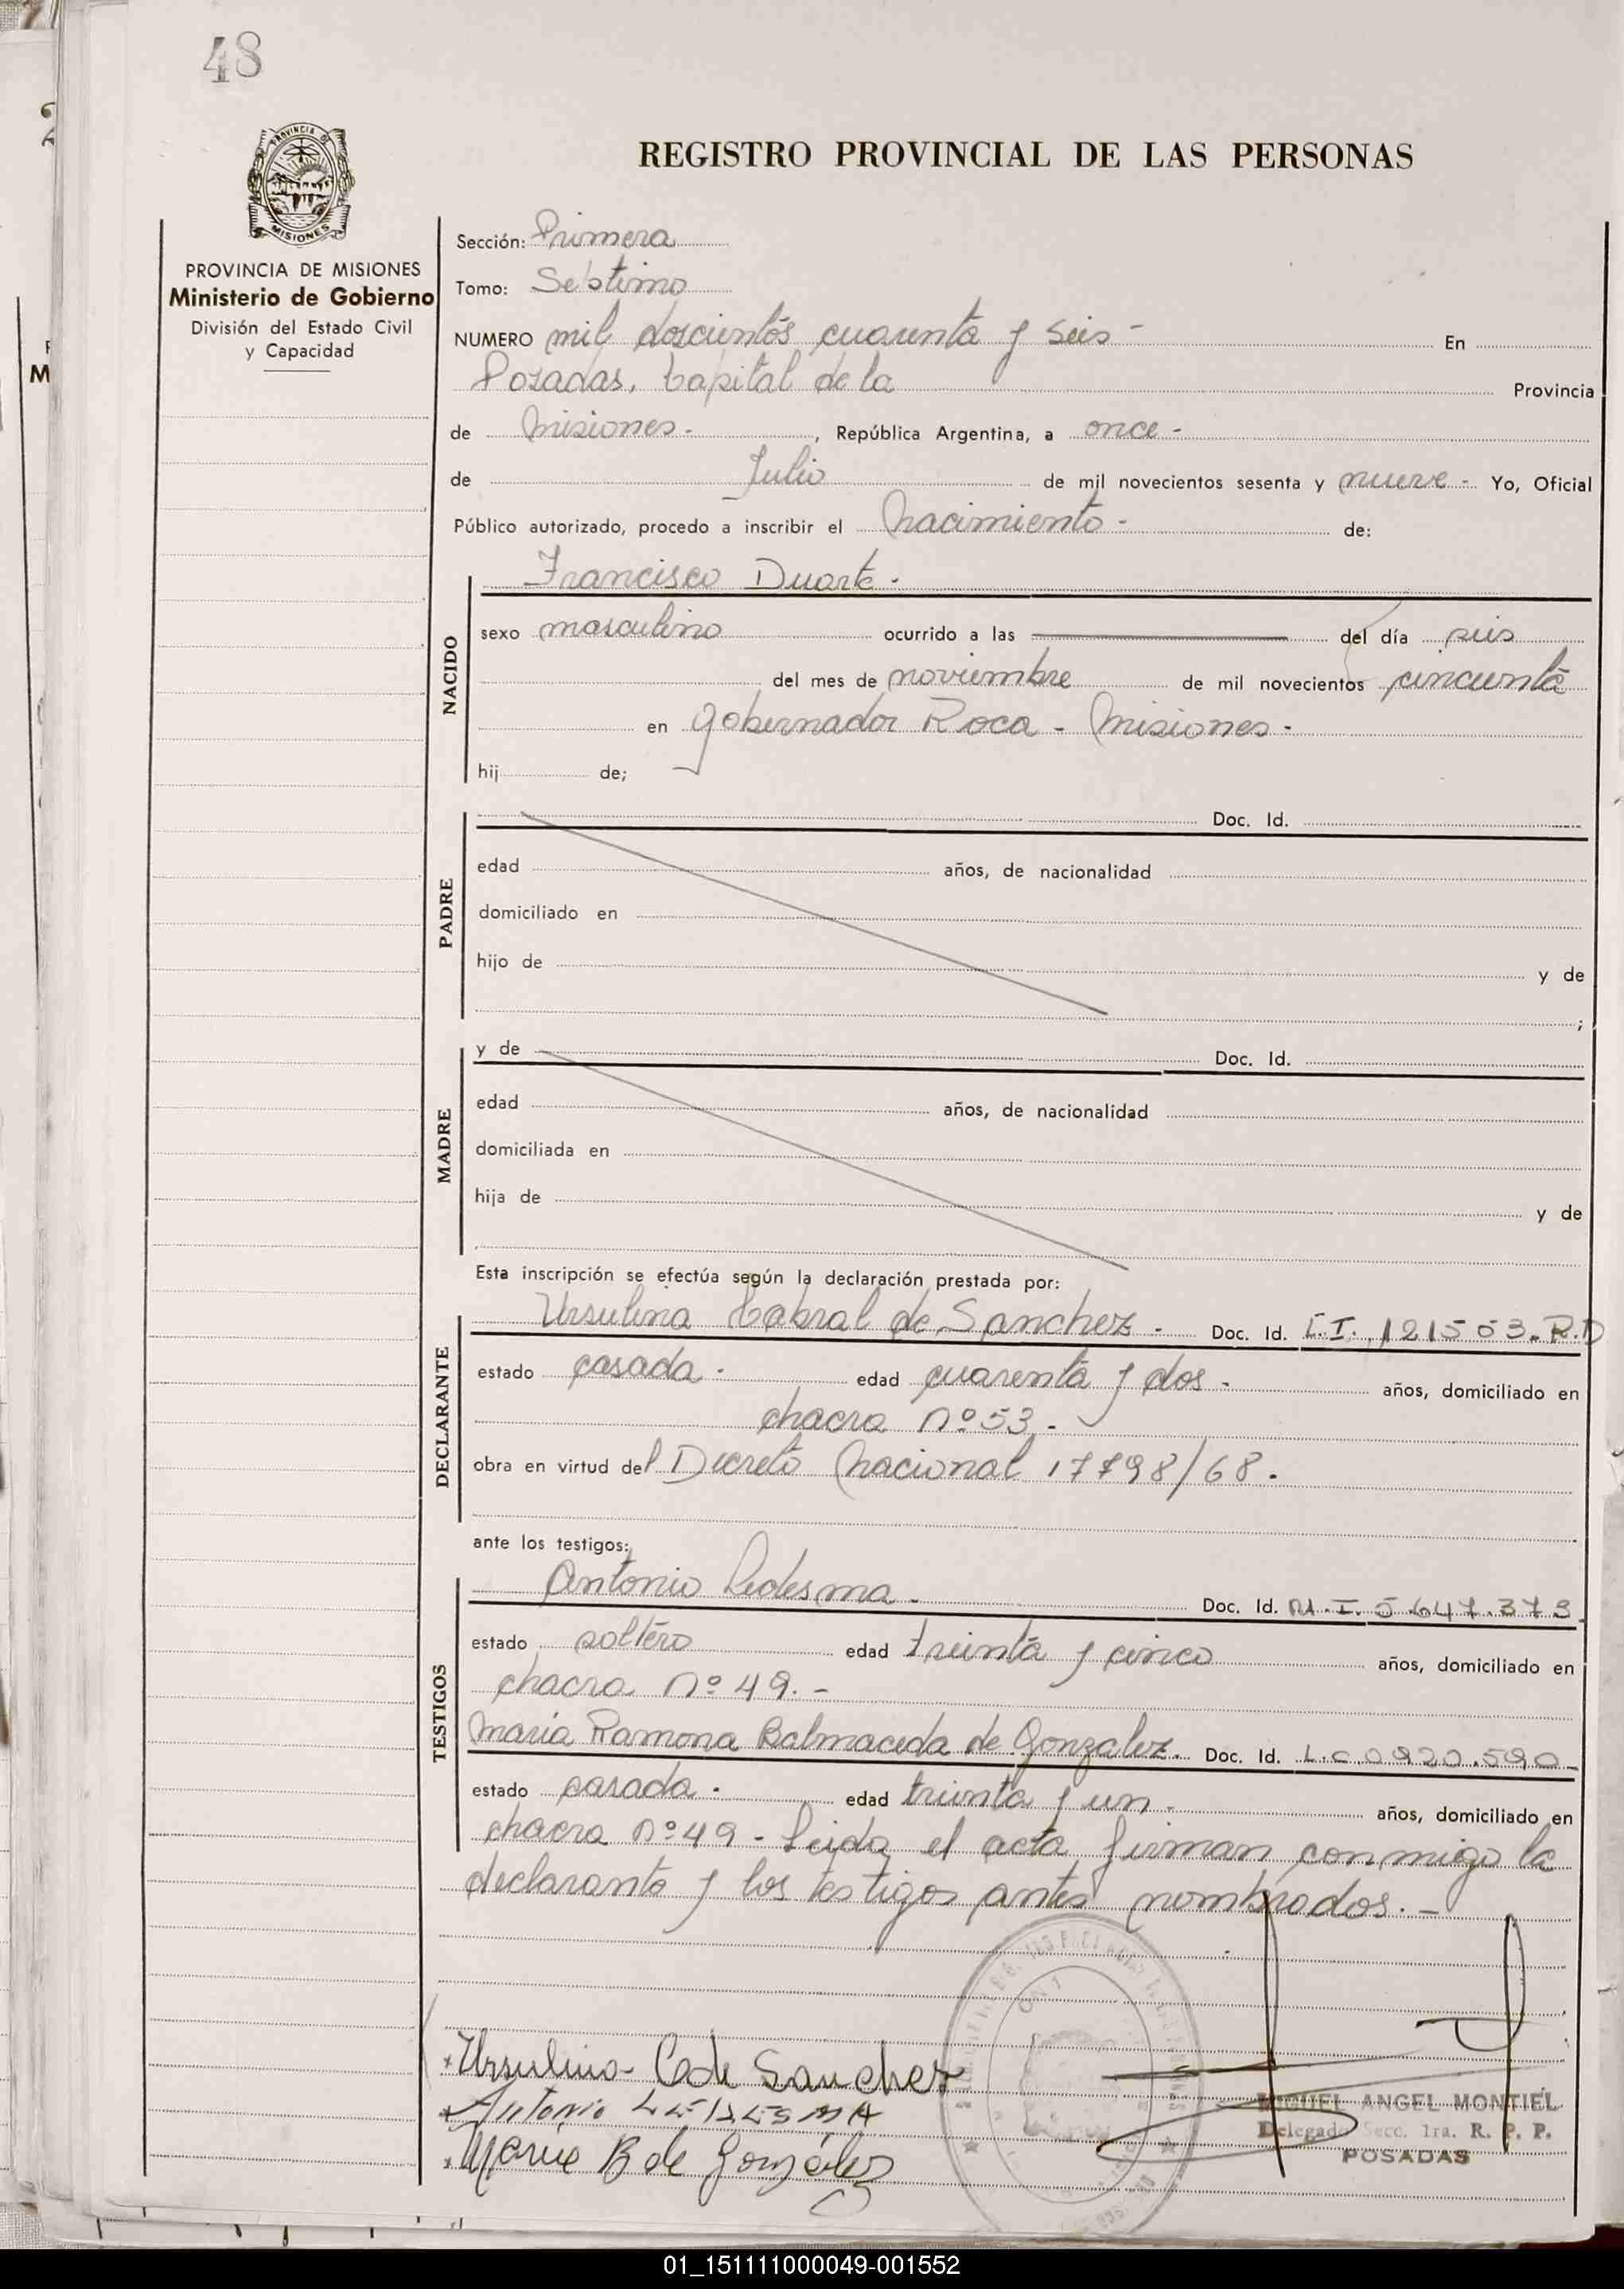 48
PROVINCIA DE
MISIONES
PROVINCIA DE MISIONES
Ministerio de Gobierno
División del Estado Civil
y Capacidad
REGISTRO PROVINCIAL DE LAS PERSONAS
Sección: Primera
Tomo: Sebtimo
NUMERO mil doscientos cuarenta y seis - En
Posadas, Capital de la Provincia
de Misiones - , República Argentina, a once -
de Julio de mil novecientos sesenta y nueve - Yo, Oficial
Público autorizado, procedo a inscribir el Nacimiento - de:
NACIDO
Francisco Duarte -
sexo masculino ocurrido a las del día seis
del mes de noviembre de mil novecientos cincuenta
en Gobernador Roca - Misiones -
hij de;
PADRE
Doc. Id.
edad años, de nacionalidad
domiciliado en
hijo de y de
;
MADRE
y de Doc. Id.
edad años, de nacionalidad
domiciliada en
hija de y de
Esta inscripción se efectúa según la declaración prestada por:
DECLARANTE
Ursulina Cabral de Sanchez - Doc. Id. C.I. 121553. R.D
estado casada - edad cuarenta y dos - años, domiciliado en
chacra nº 53 -
obra en virtud del Decreto Nacional 17798/68.
ante los testigos:
TESTIGOS
Antonio Ledesma - Doc. Id. M.I. 5.647.373
estado soltero edad treinta y cinco años, domiciliado en
chacra nº 49. -
Maria Ramona Balmaceda de Gonzalez. Doc. Id. L.C 0920.590
estado casada - edad treinta y un - años, domiciliado en
chacra nº 49 - Leida el acta firman conmigo la
declarante y los testigos antes nombrados. -
Ursulina C de Sanchez
Antonio LEDESMA
Maria B de González
MIGUEL ANGEL MONTIEL
Delegado Secc. 1ra. R. P. P.
POSADAS
01_151111000049-001552